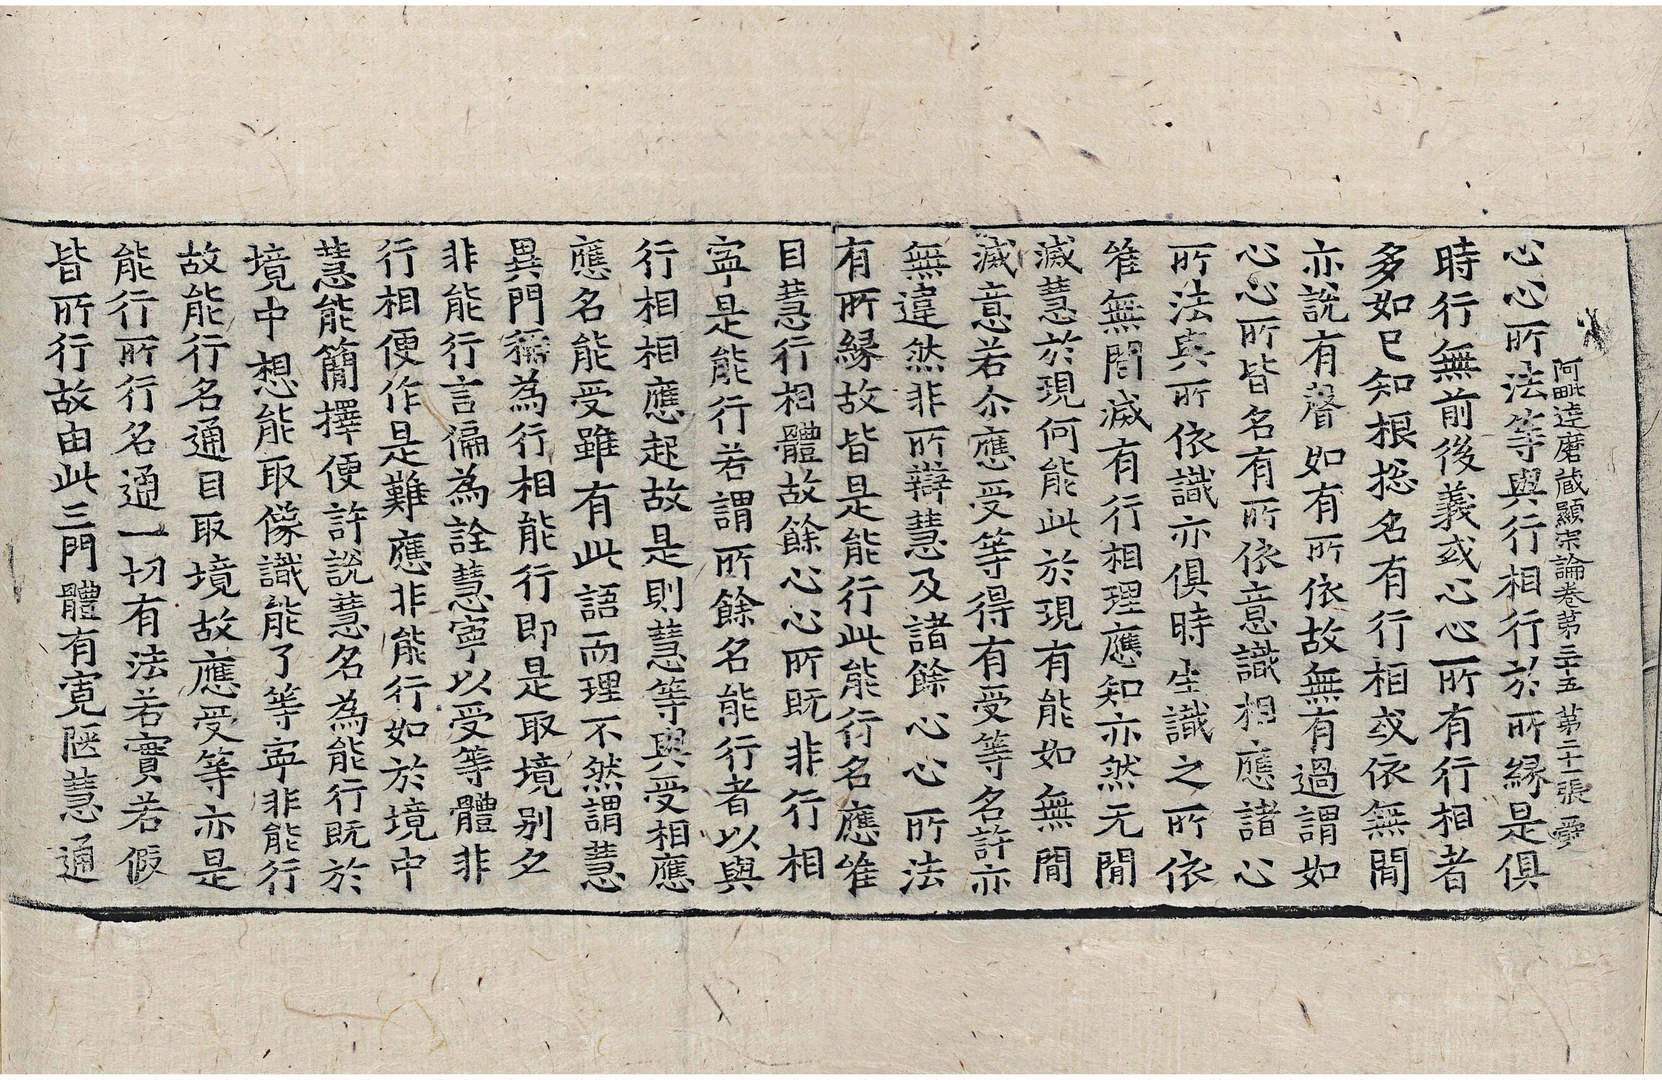 阿毗達磨藏顯宗論卷第三十五 第二十一張
心心所法等與行相行於所緣是俱
時行無前後義或心心所有行相者
多如已知根捴名有行相或依無間
亦說有聲如有所依故無有過謂如
心心所皆名有所依意識相應諸心
所法與所依識亦俱時生識之所依
唯無間滅有行相理應知亦然无間
滅慧於現何能此於現有能如無間
滅意若尒應受等得有受等名許亦
無違然非所辯慧及諸餘心心所法
有所緣故皆是能行此能行名應唯
目慧行相體故餘心心所既非行相
寧是能行若謂所餘名能行者以與
行相相應起故是則慧等與受相應
應名能受雖有此語而理不然謂慧
異門稱為行相能行即是取境別名
非能行言偏為詮慧寧以受等體非
行相便作是難應非能行如於境中
慧能簡擇便許說慧名為能行既於
境中想能取像識能了等寧非能行
故能行名通目取境故應受等亦是
能行所行名通一切有法若實若假
皆所行故由此三門體有寬陿慧通